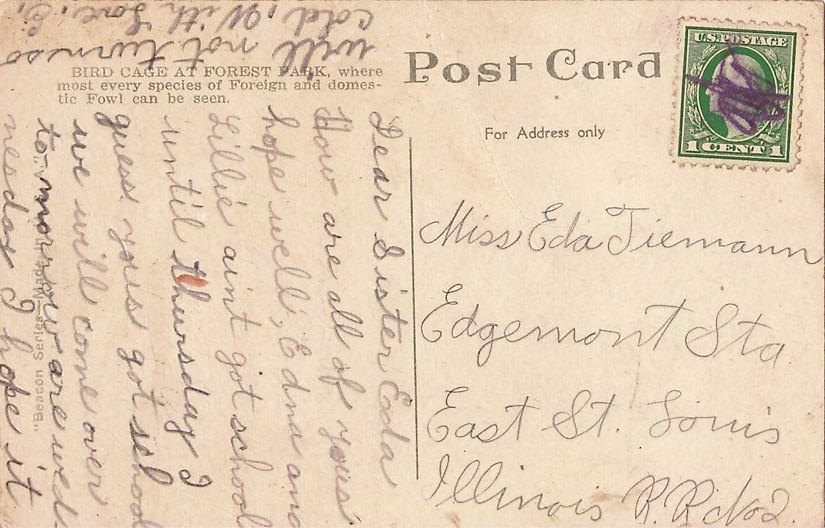 BIRD CAGE AT FOREST PARK, where
most every species of Foreign and domes-
tic Fowl can be seen.
Post Card
For Address only
U.S. POSTAGE
1 CENT 1
Miss Eda Tiemann
Edgemont Sta
East St. Louis
Illinois R.R. No 2
Dear Sister Eda
How are all of yous
hope well, Edna and
Lillie aint got school
until thursday I
guess yous got school
we will come over
tomorrow are wed
nesday I hope it
will not turn so
cold, With Love, E,
"Beacon Series"